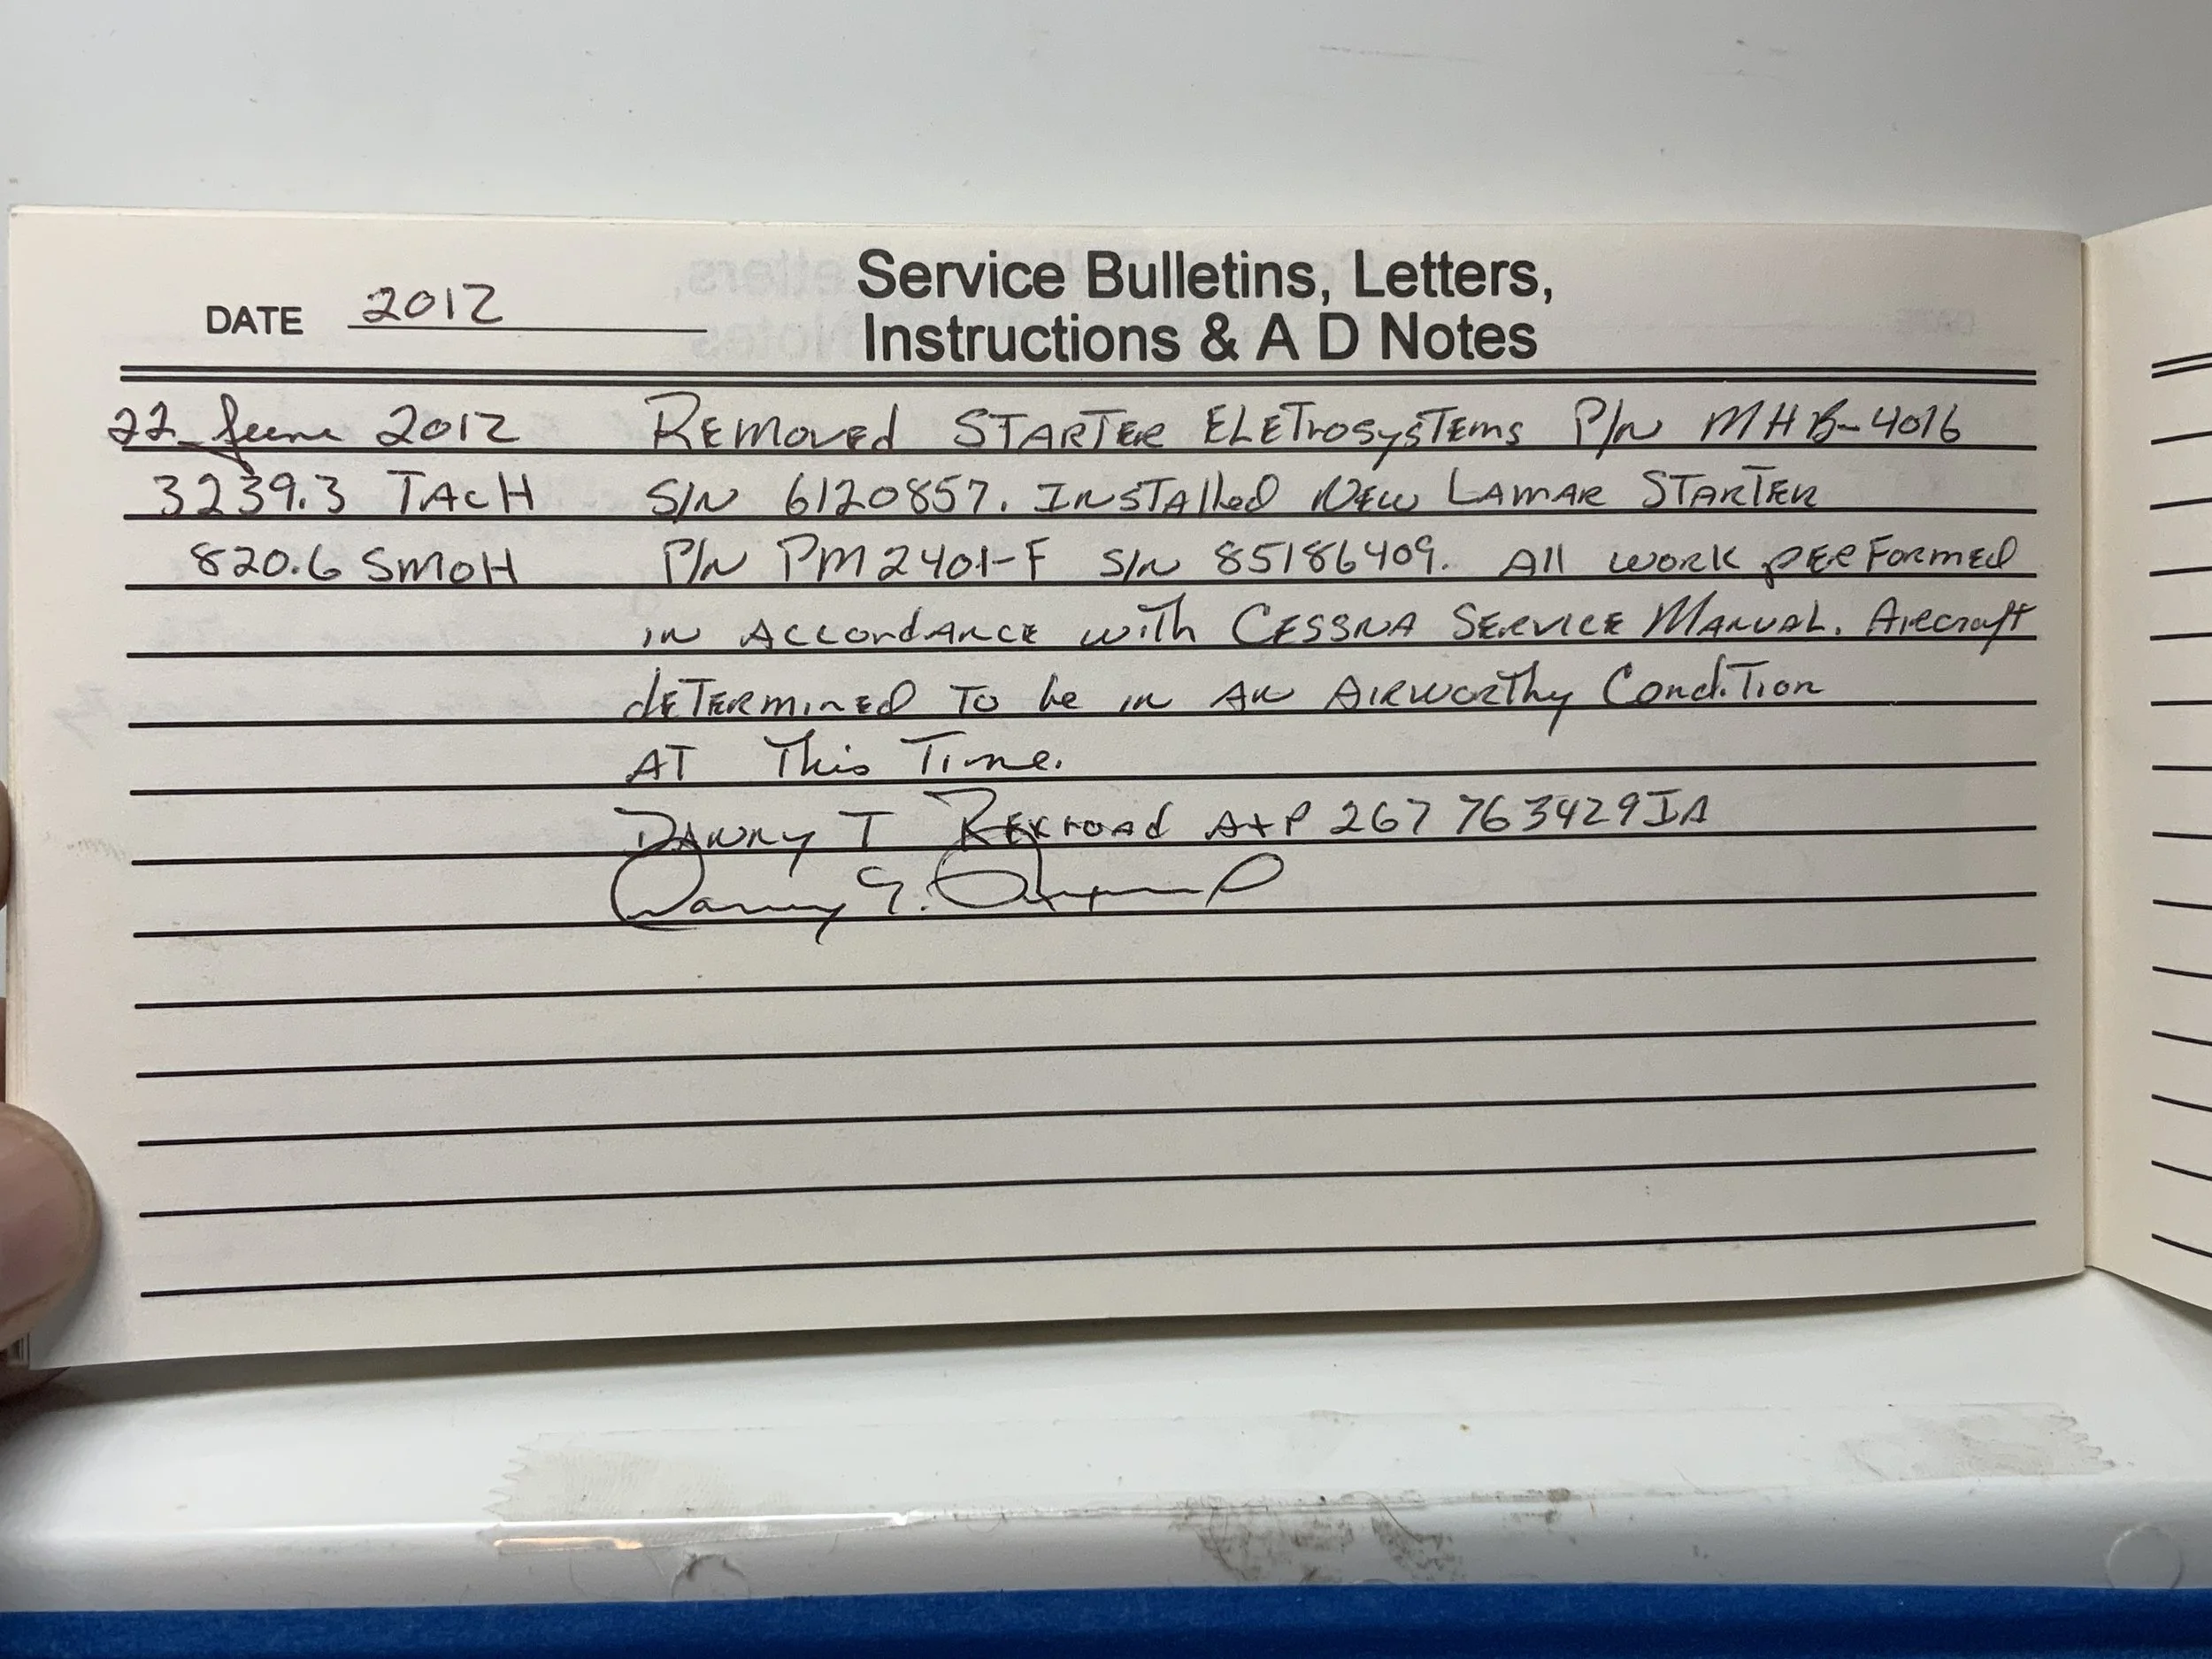 Service Bulletins, Letters,
DATE 2012
Instructions & A D Notes
22 June 2012 Removed STARTER ELETrosysTems P/N MHB-4016
3239.3 TAcH S/N 6120857. INSTAlled New LAMAR STARTER
820.6 SMOH P/N PM2401-F S/N 85186409. All work perFormed
in Accordance with CESSNA SERVICE MANUAL. Aircraft
deTermined To be in an AirworThy CondiTion
AT This Time.
DANNY T Rexroad A+P 267 763429IA